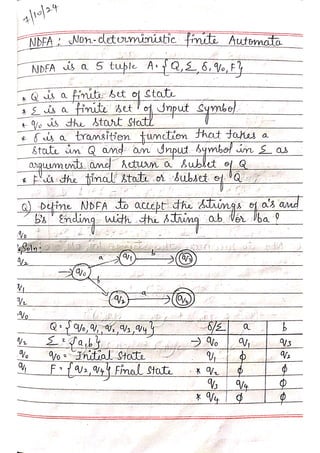 7/10/24
NDFA : Non-deterministic finite Automata
NDFA is a 5 tuple A = {Q, Σ, δ, q0, F}
* Q is a finite set of state
* Σ is a finite set of Input Symbol
* q0 is the start state
* δ is a transition function that takes a
state in Q and an Input symbol in Σ as
arguments and return a subset of Q
* F is the final state or subset of Q
Q) Define NDFA to accept the strings of a's and
b's ending with the string ab or ba ?
Soln:
→ q0 a q1 b q3
b q2 a q4
Q = {q0, q1, q2, q3, q4}
Σ = {a, b}
q0 = Initial State
F = {q2, q4} Final State
δ/Σ a b
→ q0 q1 q3
q1 ϕ q2
* q2 ϕ ϕ
q3 q4 ϕ
* q4 ϕ ϕ